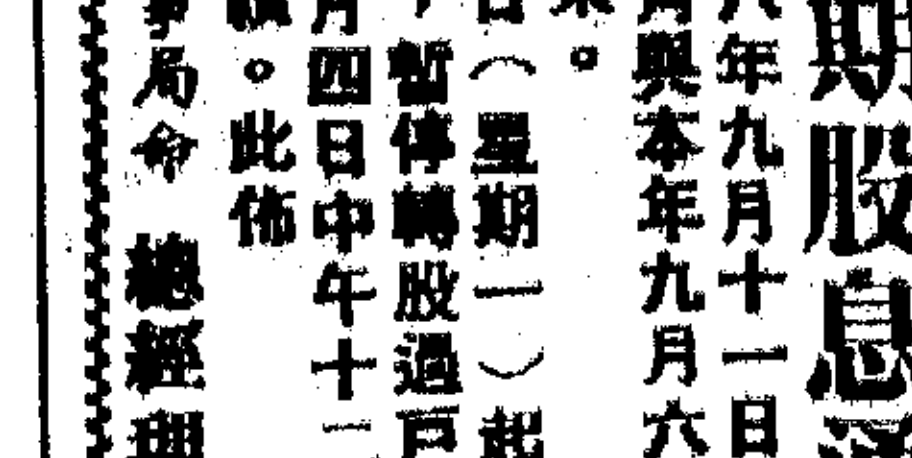 期股息
八年九月十一日
月與本年九月六
。
日（星期一）起
暫停轉股過戶
月四日中午十二
。此佈
事局命　總經理